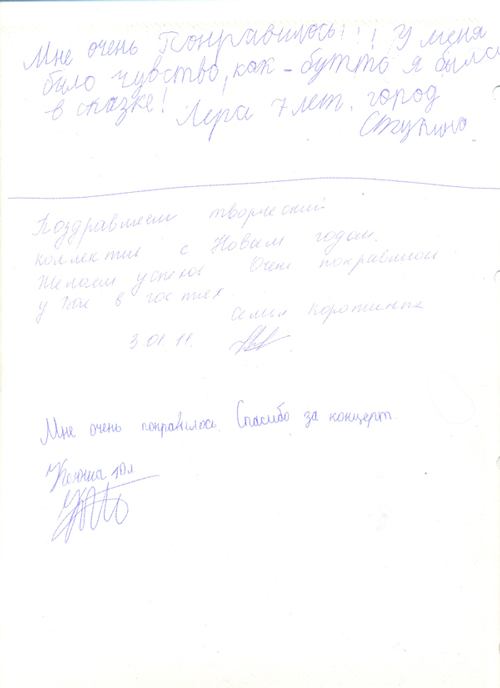 Мне очень Понравилось!!! У меня
было чувство, как-бутто я была
в сказке! Лера 7 лет. город
Ступино
Поздравляем творческий
коллектив с Новым годом.
Желаем успехов Очень понравилось
у Вас в гостях
Семья
3.01.11.
Мне очень понравилось. Спасибо за концерт.
10л